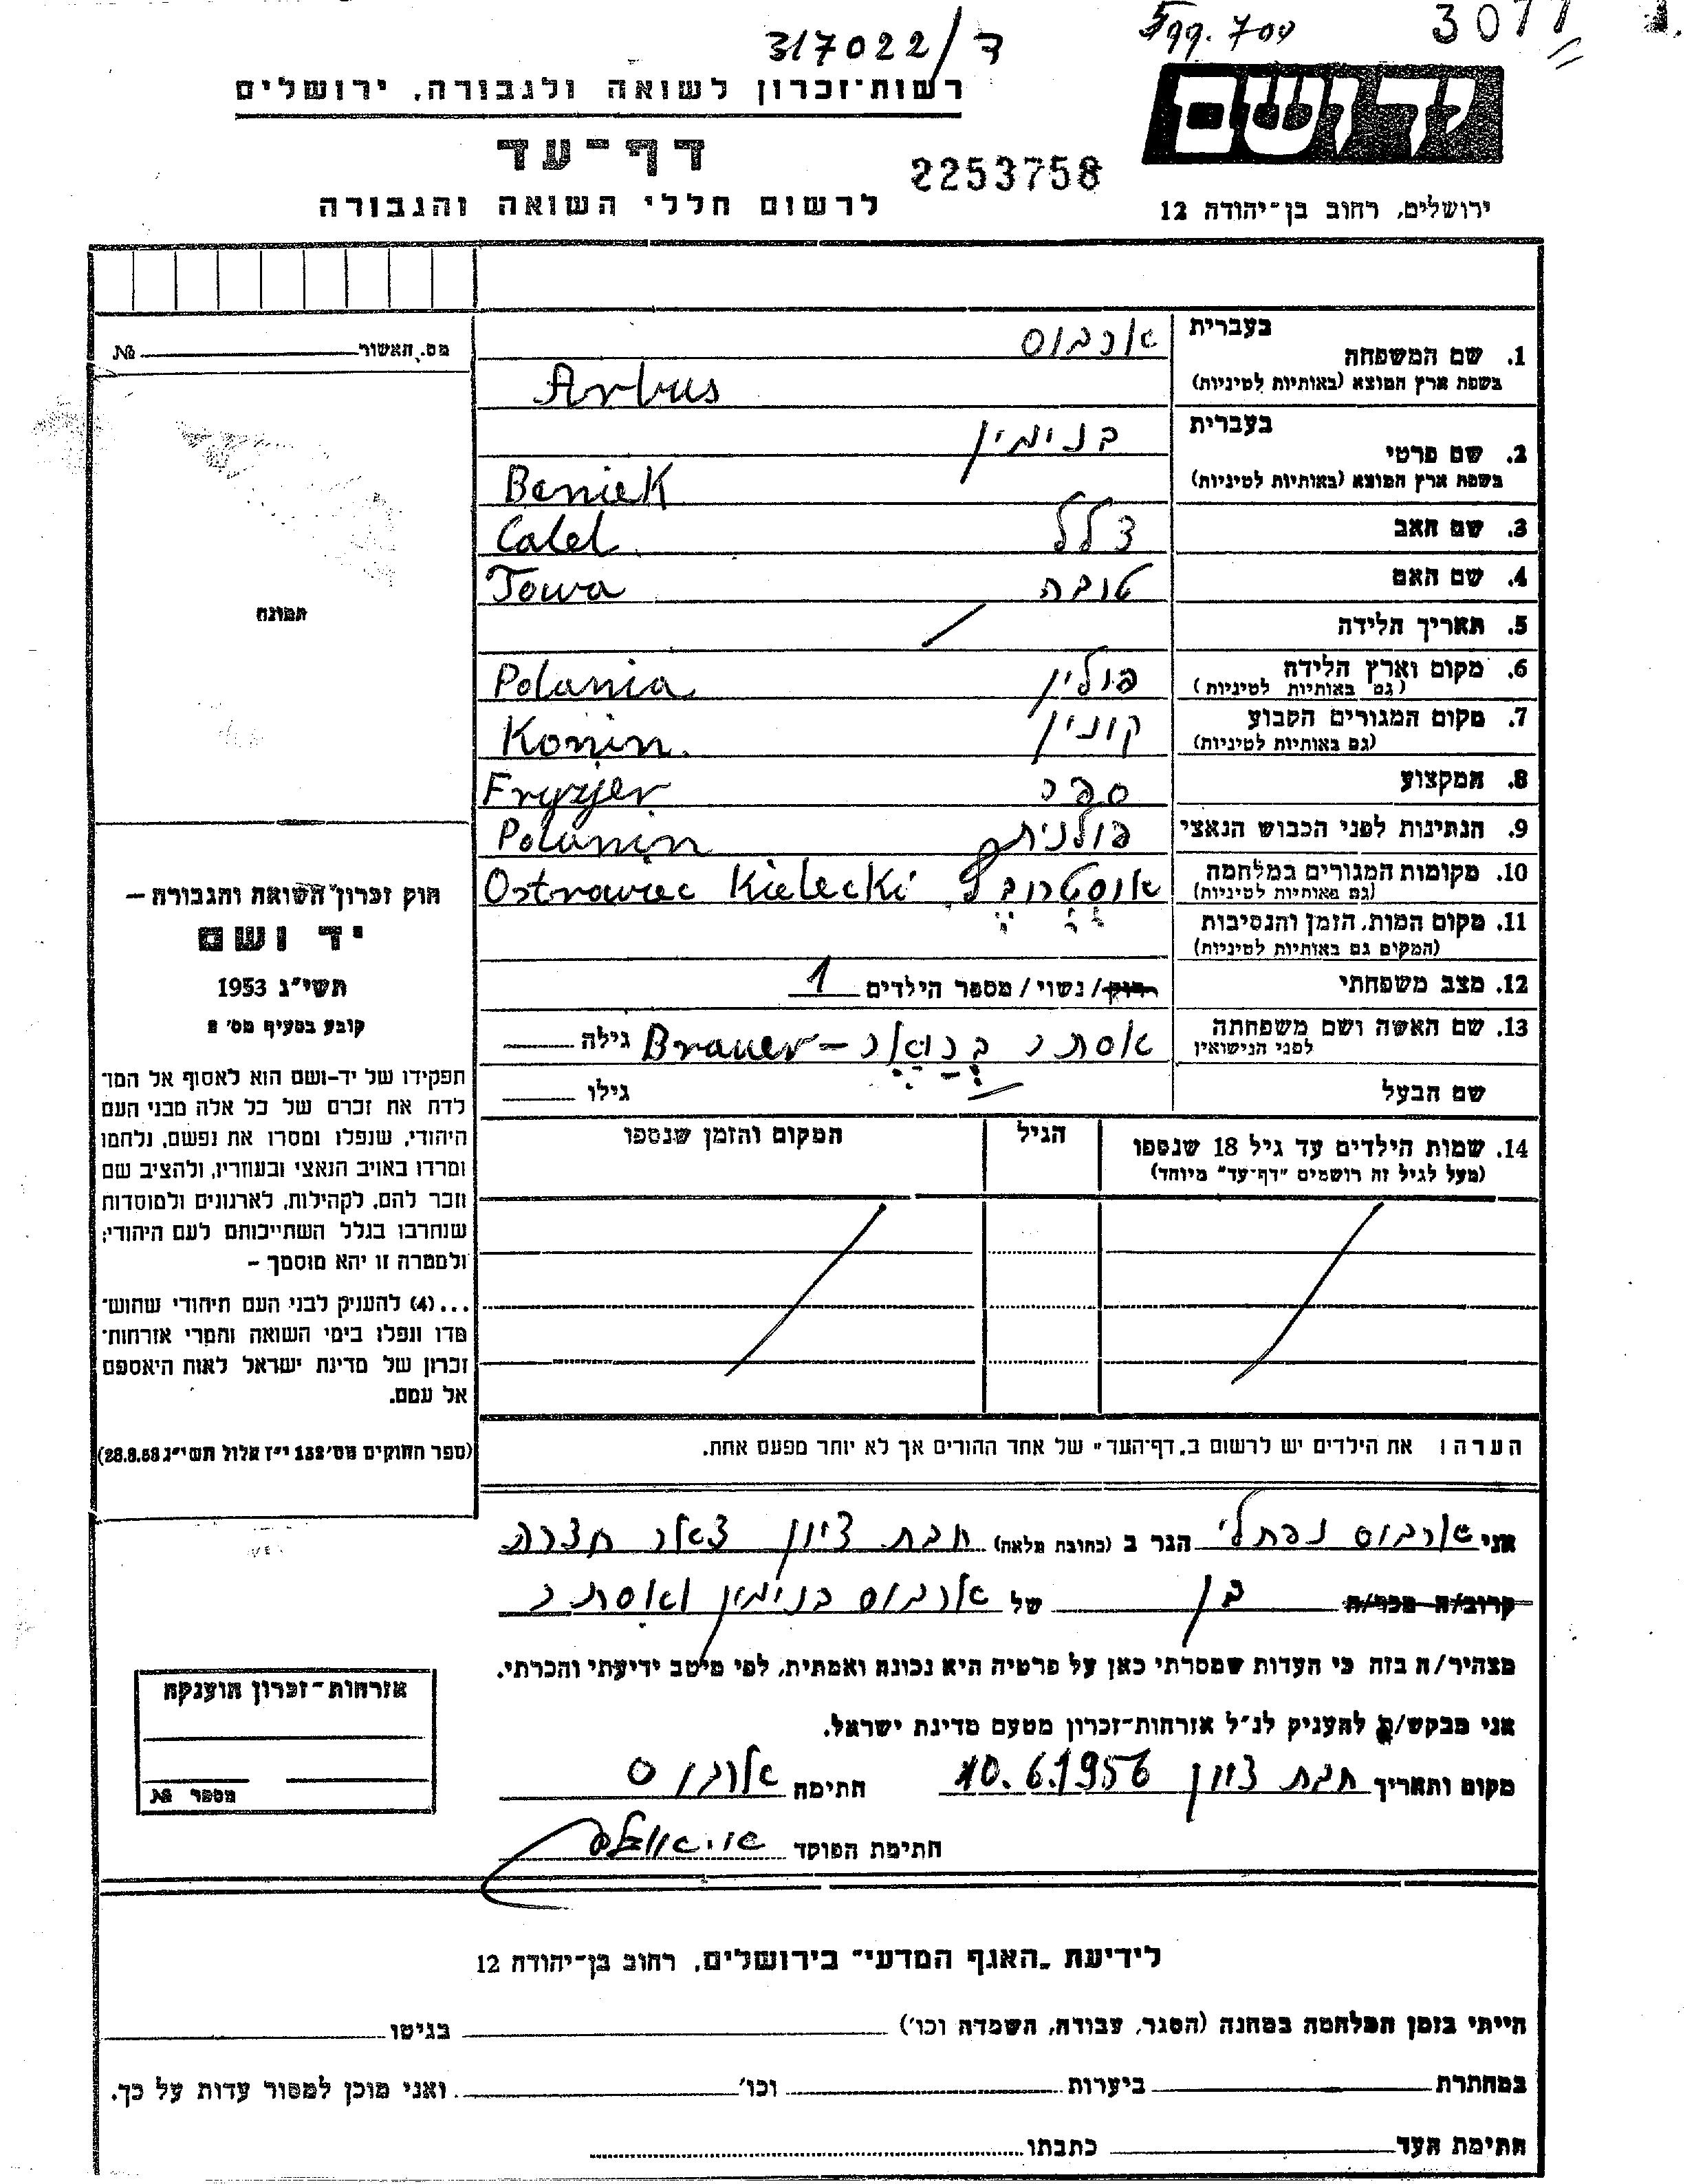 317022/ד
3077
רשות־זכרון לשואה ולגבורה, ירושלים
ידושם
דף־עד
2253758
לרשום חללי השואה והגבורה
ירושלים, רחוב בן־יהודה 12
מס. האשור № 
בעברית ארבוס
1. שם המשפחה
בשפת ארץ המוצא (באותיות לטיניות) Arbus
בעברית בנימין
2. שם פרטי
בשפת ארץ המוצא (באותיות לטיניות) Beniek
3. שם האב צלל Calel
4. שם האם טובה Towa
5. תאריך הלידה
6. מקום וארץ הלידה פולין Polania
(גם באותיות לטיניות)
7. מקום המגורים הקבוע קונין Konin
(גם באותיות לטיניות)
8. המקצוע ספר Fryzjer
9. הנתינות לפני הכבוש הנאצי פולנית Polanin
10. מקומות המגורים במלחמה Ostrowiec Kielecki
(גם באותיות לטיניות)
11. מקום המות, הזמן והנסיבות
(המקום גם באותיות לטיניות)
12. מצב משפחתי רווק/ נשוי/ מספר הילדים 1
13. שם האשה ושם משפחתה אסתר בראואר – Brauer גילה
לפני הנישואין
שם הבעל גילו
14. שמות הילדים עד גיל 18 שנספו הגיל המקום והזמן שנספו
(מעל לגיל זה רושמים "דף־עד" מיוחד)
תמונה
חוק זכרון השואה והגבורה –
יד ושם
תשי"ג 1953
קובע בסעיף מס' 2
תפקידו של יד-ושם הוא לאסוף אל המו־
לדת את זכרם של כל אלה מבני העם
היהודי, שנפלו ומסרו את נפשם, נלחמו
ומרדו באויב הנאצי ובעוזריו, ולהציב שם
וזכר להם, לקהילות, לארגונים ולמוסדות
שנחרבו בגלל השתייכותם לעם היהודי;
ולמטרה זו יהא מוסמך –
...(4) להעניק לבני העם היהודי שהוש־
מדו ונפלו בימי השואה והמרי אזרחות־
זכרון של מדינת ישראל לאות היאספם
אל עמם.
(ספר החוקים מס' 132 י"ז אלול תשי"ג 28.8.53)
הערה: את הילדים יש לרשום ב„דף־העד" של אחד ההורים אך לא יותר מפעם אחת.
אני ארבוס נפתלי הגר ב (כתובת מלאה) חבת ציון
קרוב/ה מכר/ה בן של ארבוס בנימין ואסתר
מצהיר/ה בזה כי העדות שמסרתי כאן על פרטיה היא נכונה ואמתית, לפי מיטב ידיעתי והכרתי.
אני מבקש/ת להעניק לנ"ל אזרחות־זכרון מטעם מדינת ישראל.
מקום ותאריך חבת ציון 10.6.1956 חתימה ארבוס
חתימת הפוקד
אזרחות־זכרון הוענקה
מספר №
לידיעת „האגף המדעי" בירושלים, רחוב בן־יהודה 12
הייתי בזמן המלחמה במחנה (הסגר, עבודה, השמדה וכו') בגיטו
במחתרת ביערות וכו' ואני מוכן למסור עדות על כך.
חתימת העד כתבתו